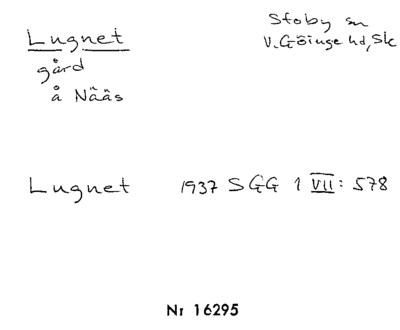 Lugnet
gård
å Nääs
Stoby sn
V. Göinge hd, Sk
Lugnet 1937 SGG 1 VII: 578
Nr 16295